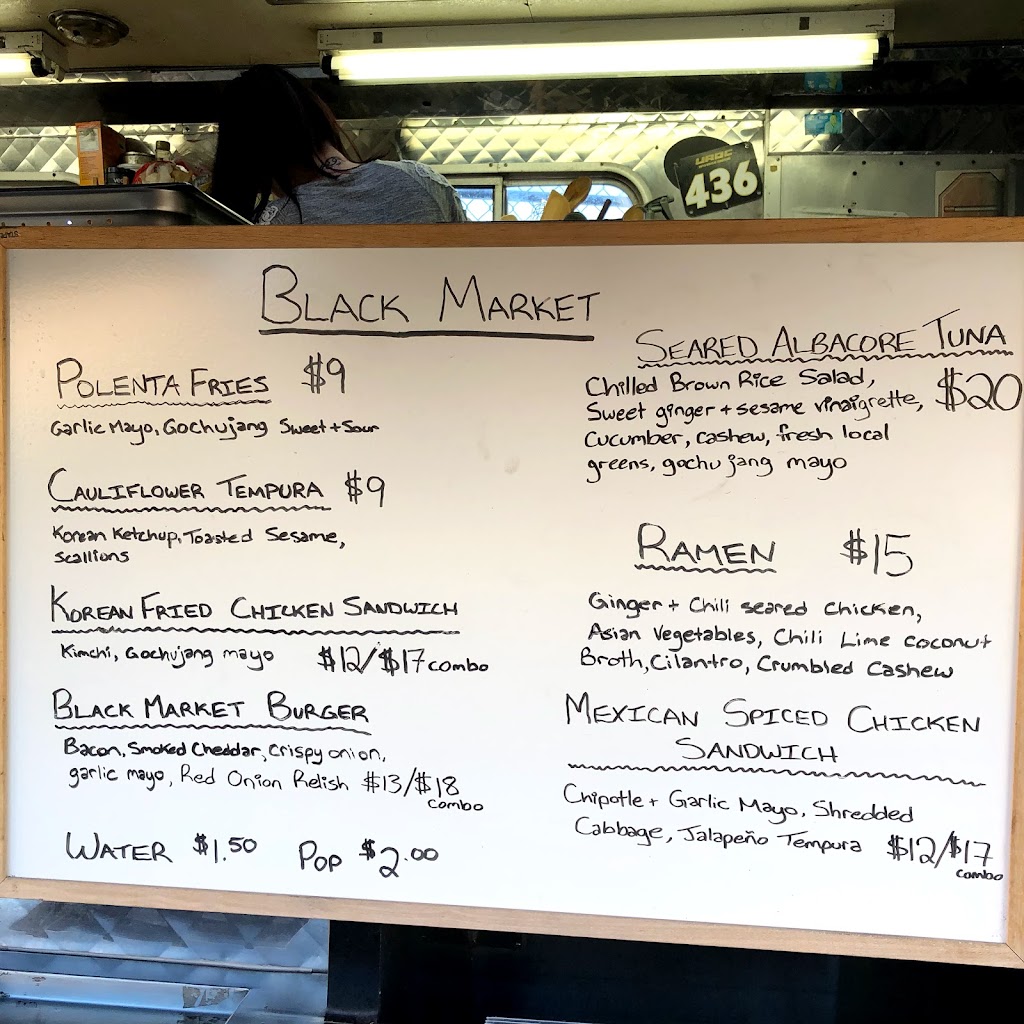 436
BLACK MARKET
POLENTA FRIES $9
Garlic Mayo, Gochujang Sweet + Sour
CAULIFLOWER TEMPURA $9
Korean Ketchup, Toasted Sesame,
Scallions
KOREAN FRIED CHICKEN SANDWICH
Kimchi, Gochujang mayo $12/$17 combo
BLACK MARKET BURGER
Bacon, Smoked Cheddar, Crispy onion,
garlic mayo, Red Onion Relish $13/$18
combo
WATER $1.50 POP $2.00
SEARED ALBACORE TUNA
Chilled Brown Rice Salad,
Sweet ginger + sesame vinaigrette, $20
cucumber, cashew, fresh local
greens, gochujang mayo
RAMEN $15
Ginger + Chili seared chicken,
Asian Vegetables, Chili Lime coconut
Broth, Cilantro, Crumbled Cashew
MEXICAN SPICED CHICKEN
SANDWICH
Chipotle + Garlic Mayo, Shredded
Cabbage, Jalapeño Tempura $12/$17
combo